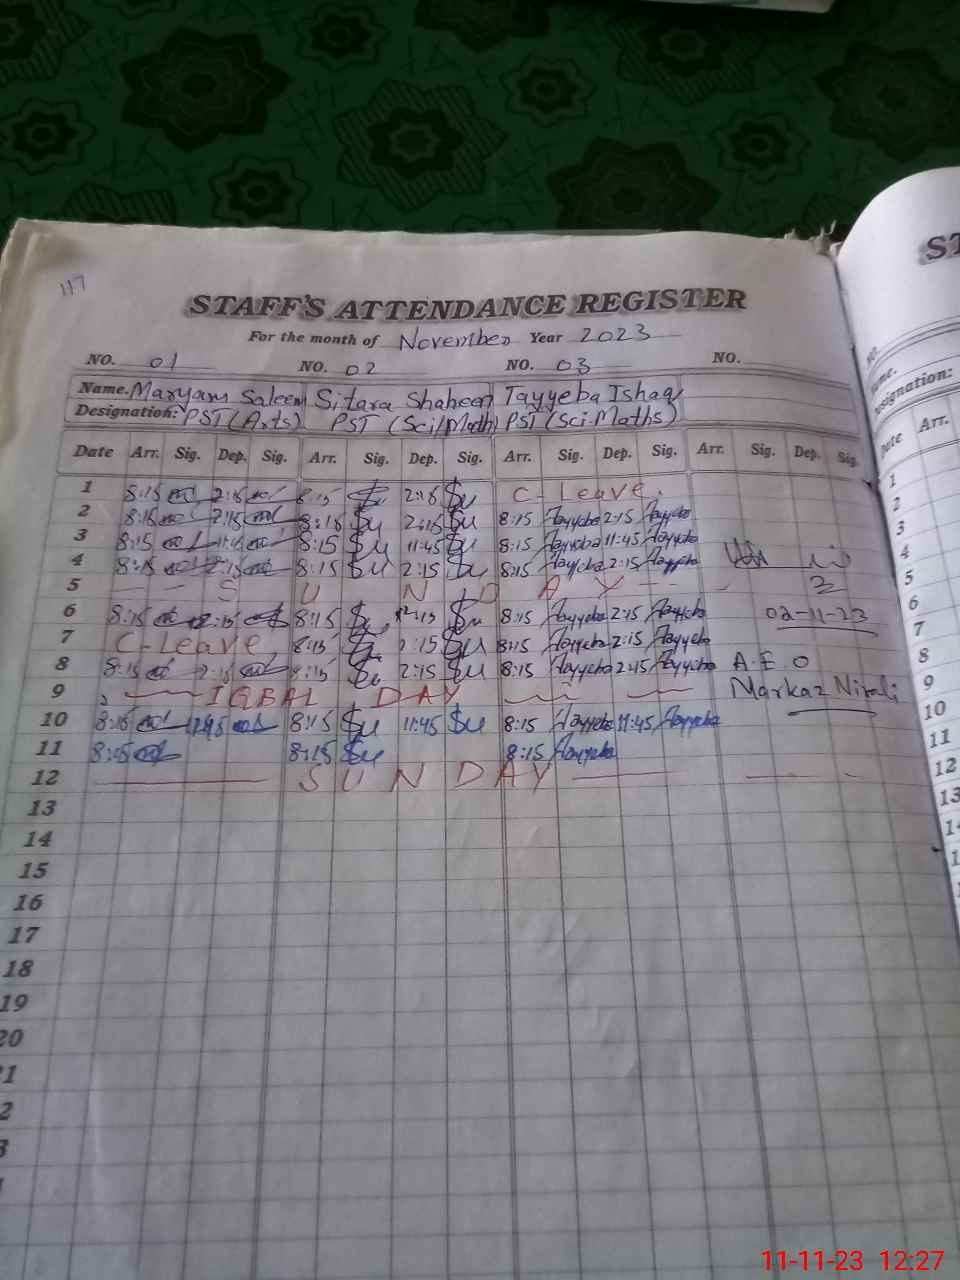 117
STAFF'S ATTENDANCE REGISTER
For the month of November Year 2023
NO. 01 NO. 02 NO. 03 NO.
Name. Maryam Saleem Sitara Shaheen Tayyeba Ishaq
Designation: PST (Arts) PST (Sci/Math) PST (Sci-Maths)
Date Arr. Sig. Dep. Sig. Arr. Sig. Dep. Sig. Arr. Sig. Dep. Sig. Arr. Sig. Dep. Sig.
1 8:15 2:15 8:15 2:15 C-Leave.
2 8:15 2:15 8:15 2:15 8:15 Tayyeba 2:15 Tayyeba
3 8:15 11:45 8:15 11:45 8:15 Tayyeba 11:45 Tayyeba
4 8:15 2:15 8:15 2:15 8:15 Tayyeba 2:15 Tayyeba
5 SUNDAY
6 8:15 2:15 8:15 2:15 8:15 Tayyeba 2:15 Tayyeba 02-11-23
7 C-Leave 8:15 2:15 8:15 Tayyeba 2:15 Tayyeba
8 8:15 2:15 8:15 2:15 8:15 Tayyeba 2:15 Tayyeba A.E.O
9 IQBAL DAY Markaz Nirali
10 8:15 11:45 8:15 11:45 8:15 Tayyeba 11:45 Tayyeba
11 8:05 8:15 8:15 Tayyeba
12 SUNDAY
13
14
15
16
17
18
19
20
ST
NO.
Name.
Designation:
Date Arr.
1
2
3
4
5
6
7
8
9
10
11
12
13
11-11-23 12:27